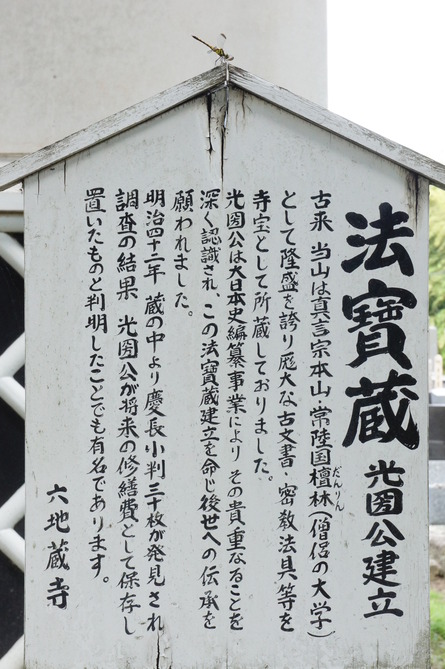 法寶蔵 光圀公建立
古来 当山は真言宗本山 常陸国檀林(僧侶の大学)
だんりん
として隆盛を誇り厖大な古文書・密教法具等を
寺宝として所蔵しておりました。
光圀公は大日本史編纂事業により その貴重なることを
深く認識され、この法寶蔵建立を命じ後世への伝承を
願われました。
明治四十二年 蔵の中より慶長小判三十枚が発見され
調査の結果 光圀公が将来の修繕費として保存し
置いたものと判明したことでも有名であります。
六地蔵寺